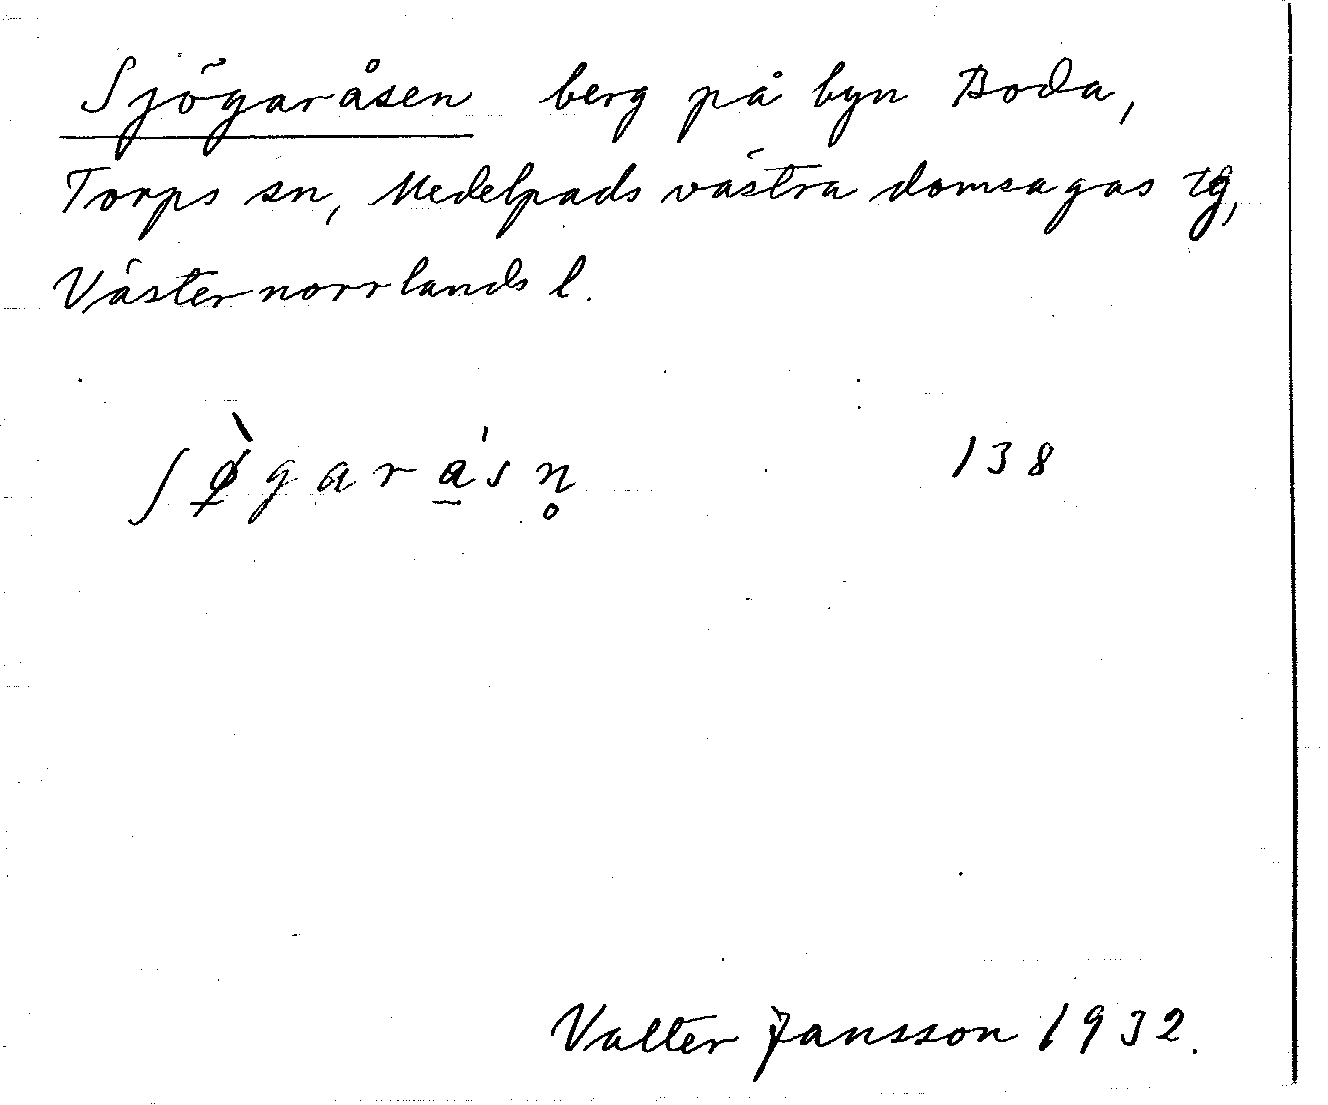 Sjögaråsen berg på byn Boda,
Torps sn, Medelpads västra domsagas tg,
Västernorrlands l.
ʃø̀gara̲'sn̥ 138
Valter Jansson 1932.